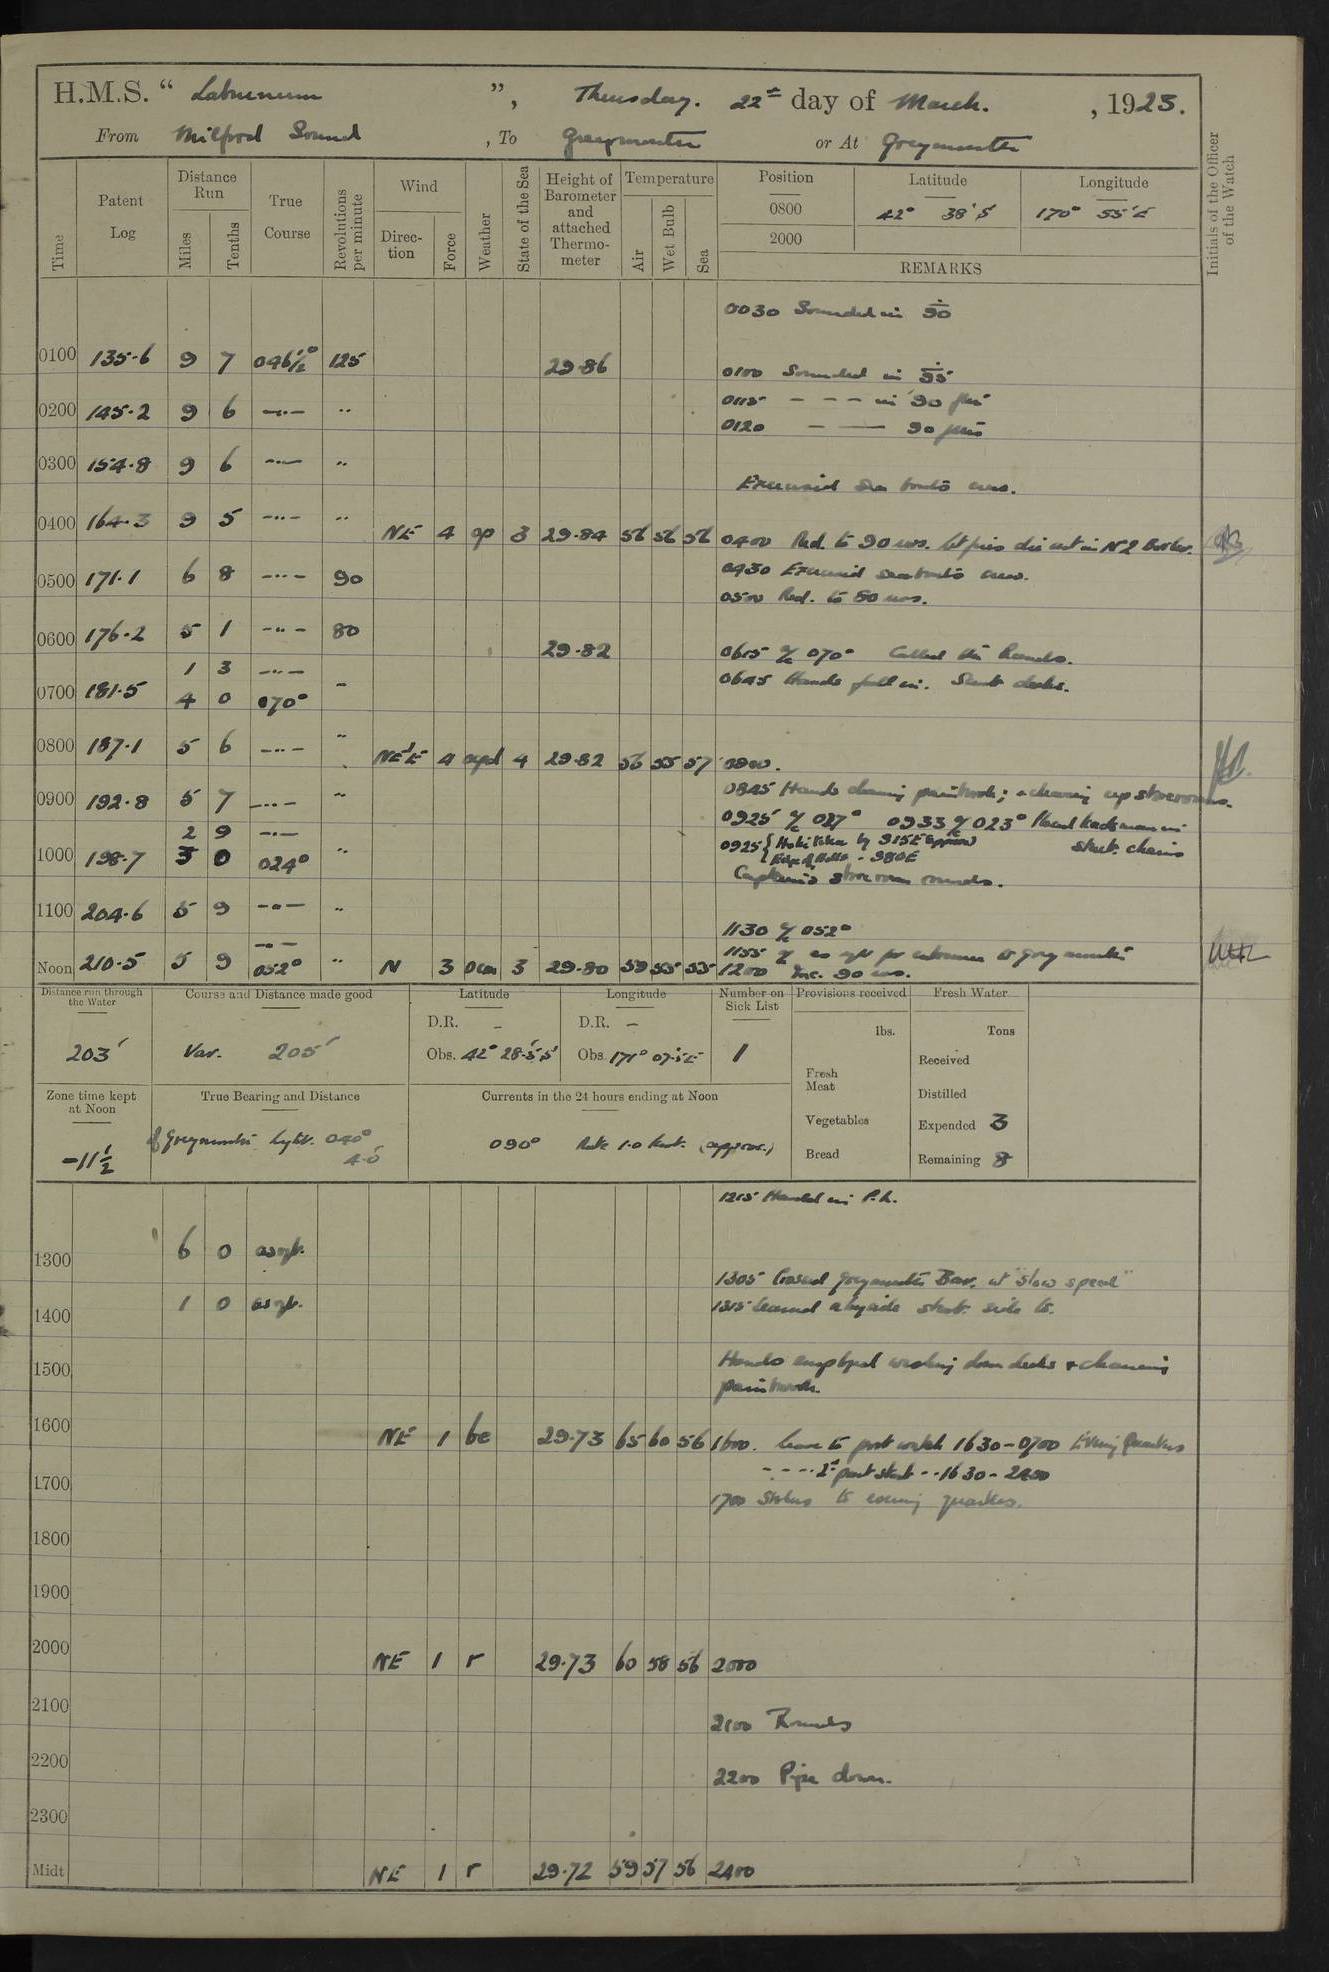 H.M.S. “ Laburnum ”, Thursday. 22nd day of March. , 1923.
From Milford Sound , To Greymouth or At Greymouth
Time
Patent Log
Distance Run
Miles
Tenths
True Course
Revolutions per minute
Wind
Direc-tion
Force
Weather
State of the Sea
Height of Barometer and attached Thermo-meter
Temperature
Air
Wet Bulb
Sea
Position Latitude Longitude
0800 42° 38' S 170° 55' E
2000
REMARKS
Initials of the Officer of the Watch
0030 Sounded in 90
0100 135·6 9 7 046½° 125 29·86 0100 Sounded in 95
0115 – – – in 90 fms
0200 145·2 9 6 –··– ″ 0120 – — 90 fms
0300 154·8 9 6 –··– ″
Exercised sea boats crew.
0400 164·3 9 5 –··– ″ NE 4 op 3 29·84 56 56 56 0400 Red. to 90 revs. Let fires die out in No 2 Boiler.
0430 Exercised seaboats crew.
0500 171·1 6 8 –··– 90 0500 Red. to 80 revs.
0600 176·2 5 1 –··– 80 29·82 0615 a/c 070° Called the Hands.
1 3 –··–
0645 Hands fall in. Scrub decks.
0700 181·5 4 0 070° ″
0800 187·1 5 6 –··– ″ NE'E 4 4 29·82 56 55 57 0800.
0900 192·8 5 7 –··– ″ 0845 Hands cleaning paintwork; & clearing up storerooms.
2 9 –··– 0925 a/c 027° 0933 a/c 023° Hand leadsman in
0925 { Hokitika by 315E approx stbd. chains
1000 198·7 3 0 024° ″
Captain's storeroom rounds.
1100 204·6 5 9 –··– ″
–··– 1130 a/c 052°
1155 a/c as reqt for entrance to Greymouth
Noon 210·5 5 9 052° ″ N 3 3 29·80 59 55 55 1200 Inc. 90 revs.
Distance run through the Water
203'
Course and Distance made good
Var. 205'
Latitude
D.R. –
Obs. 42° 28·5' S
Longitude
D.R. –
Obs. 171° 07·5' E
Number on Sick List
1
Provisions received
lbs.
Fresh Meat
Vegetables
Bread
Fresh Water
Tons
Received
Distilled
Expended 3
Remaining 8
Zone time kept at Noon
–11½
True Bearing and Distance
of Greymouth light. 040°
4·0
Currents in the 24 hours ending at Noon
090° Rate 1·0 knot. (approx.)
1215 Handed in P.L.
1300 6 0 as reqt.
1305 Crossed Greymouth Bar. at “slow speed”
1400 1 0 as reqt. 1315 Secured alongside starb. side to.
1500 Hands employed washing down decks & cleaning
paintwork.
1600 NE 1 bc 29·73 65 60 56 1600. Leave to port watch 1630–0700
– – – 2nd part starb – – 1630 – 2200
1700 1700 Stokers to evening quarters.
1800
1900
2000 NE 1 r 29·73 60 58 56 2000
2100 2100 Rounds
2200 2200 Pipe down.
2300
Midt NE 1 r 29·72 59 57 56 2400